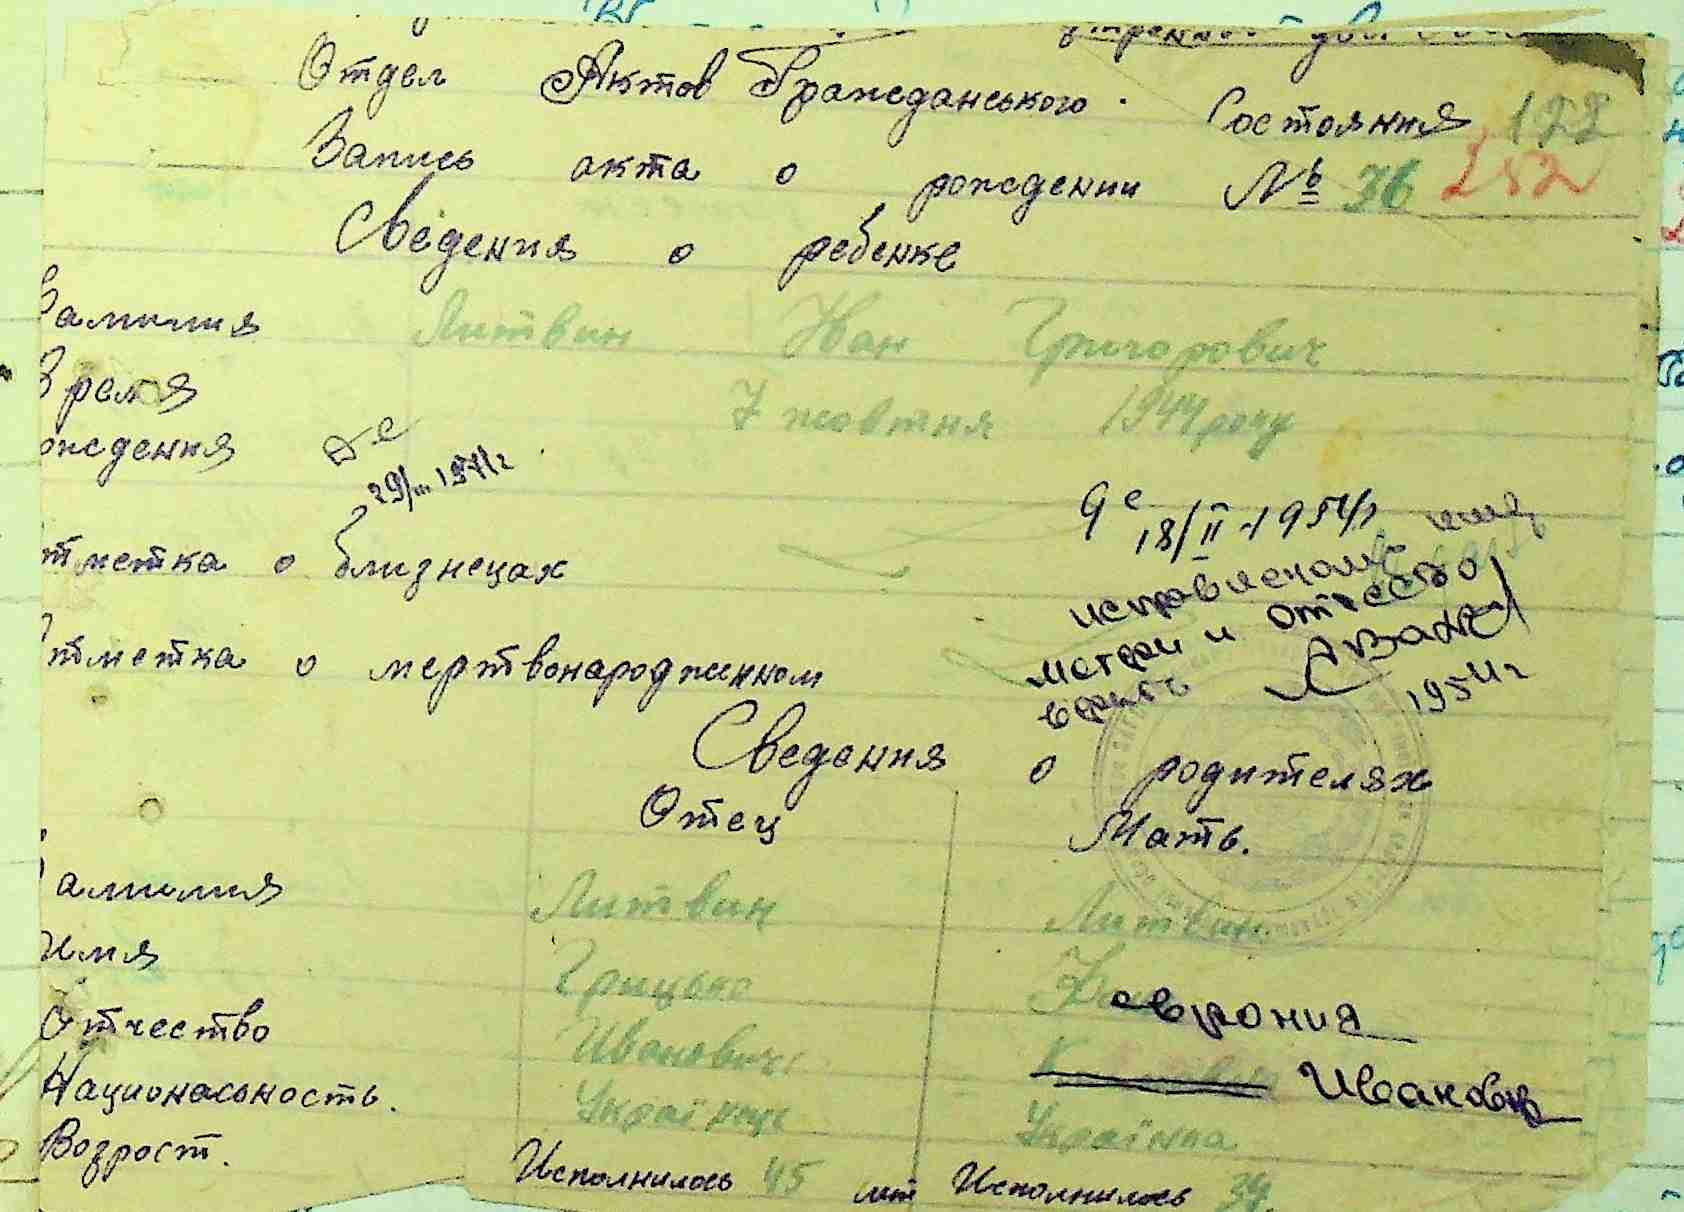 Отдел Актов Гражданського Состояния 122
Запись акта о рождении № 36 252
Сведения о ребенке
Фамилия Литвин Иван Григорович
Время
рождения 7 жовтня 1944 року
29/III 1971г
18/II-1954г
исправленому имя
отметка о близнецах
матери и отчество
верить
1954г
Отметка о мертвонародженном
Сведения о родителях
Отец Мать.
Фамилия Литвин Литвин
Имя Грицько еврония
Отчество Иванович Ивановна
Национальность. Українець Українка
Возрост. Исполнилось 45 лет Исполнилось 34